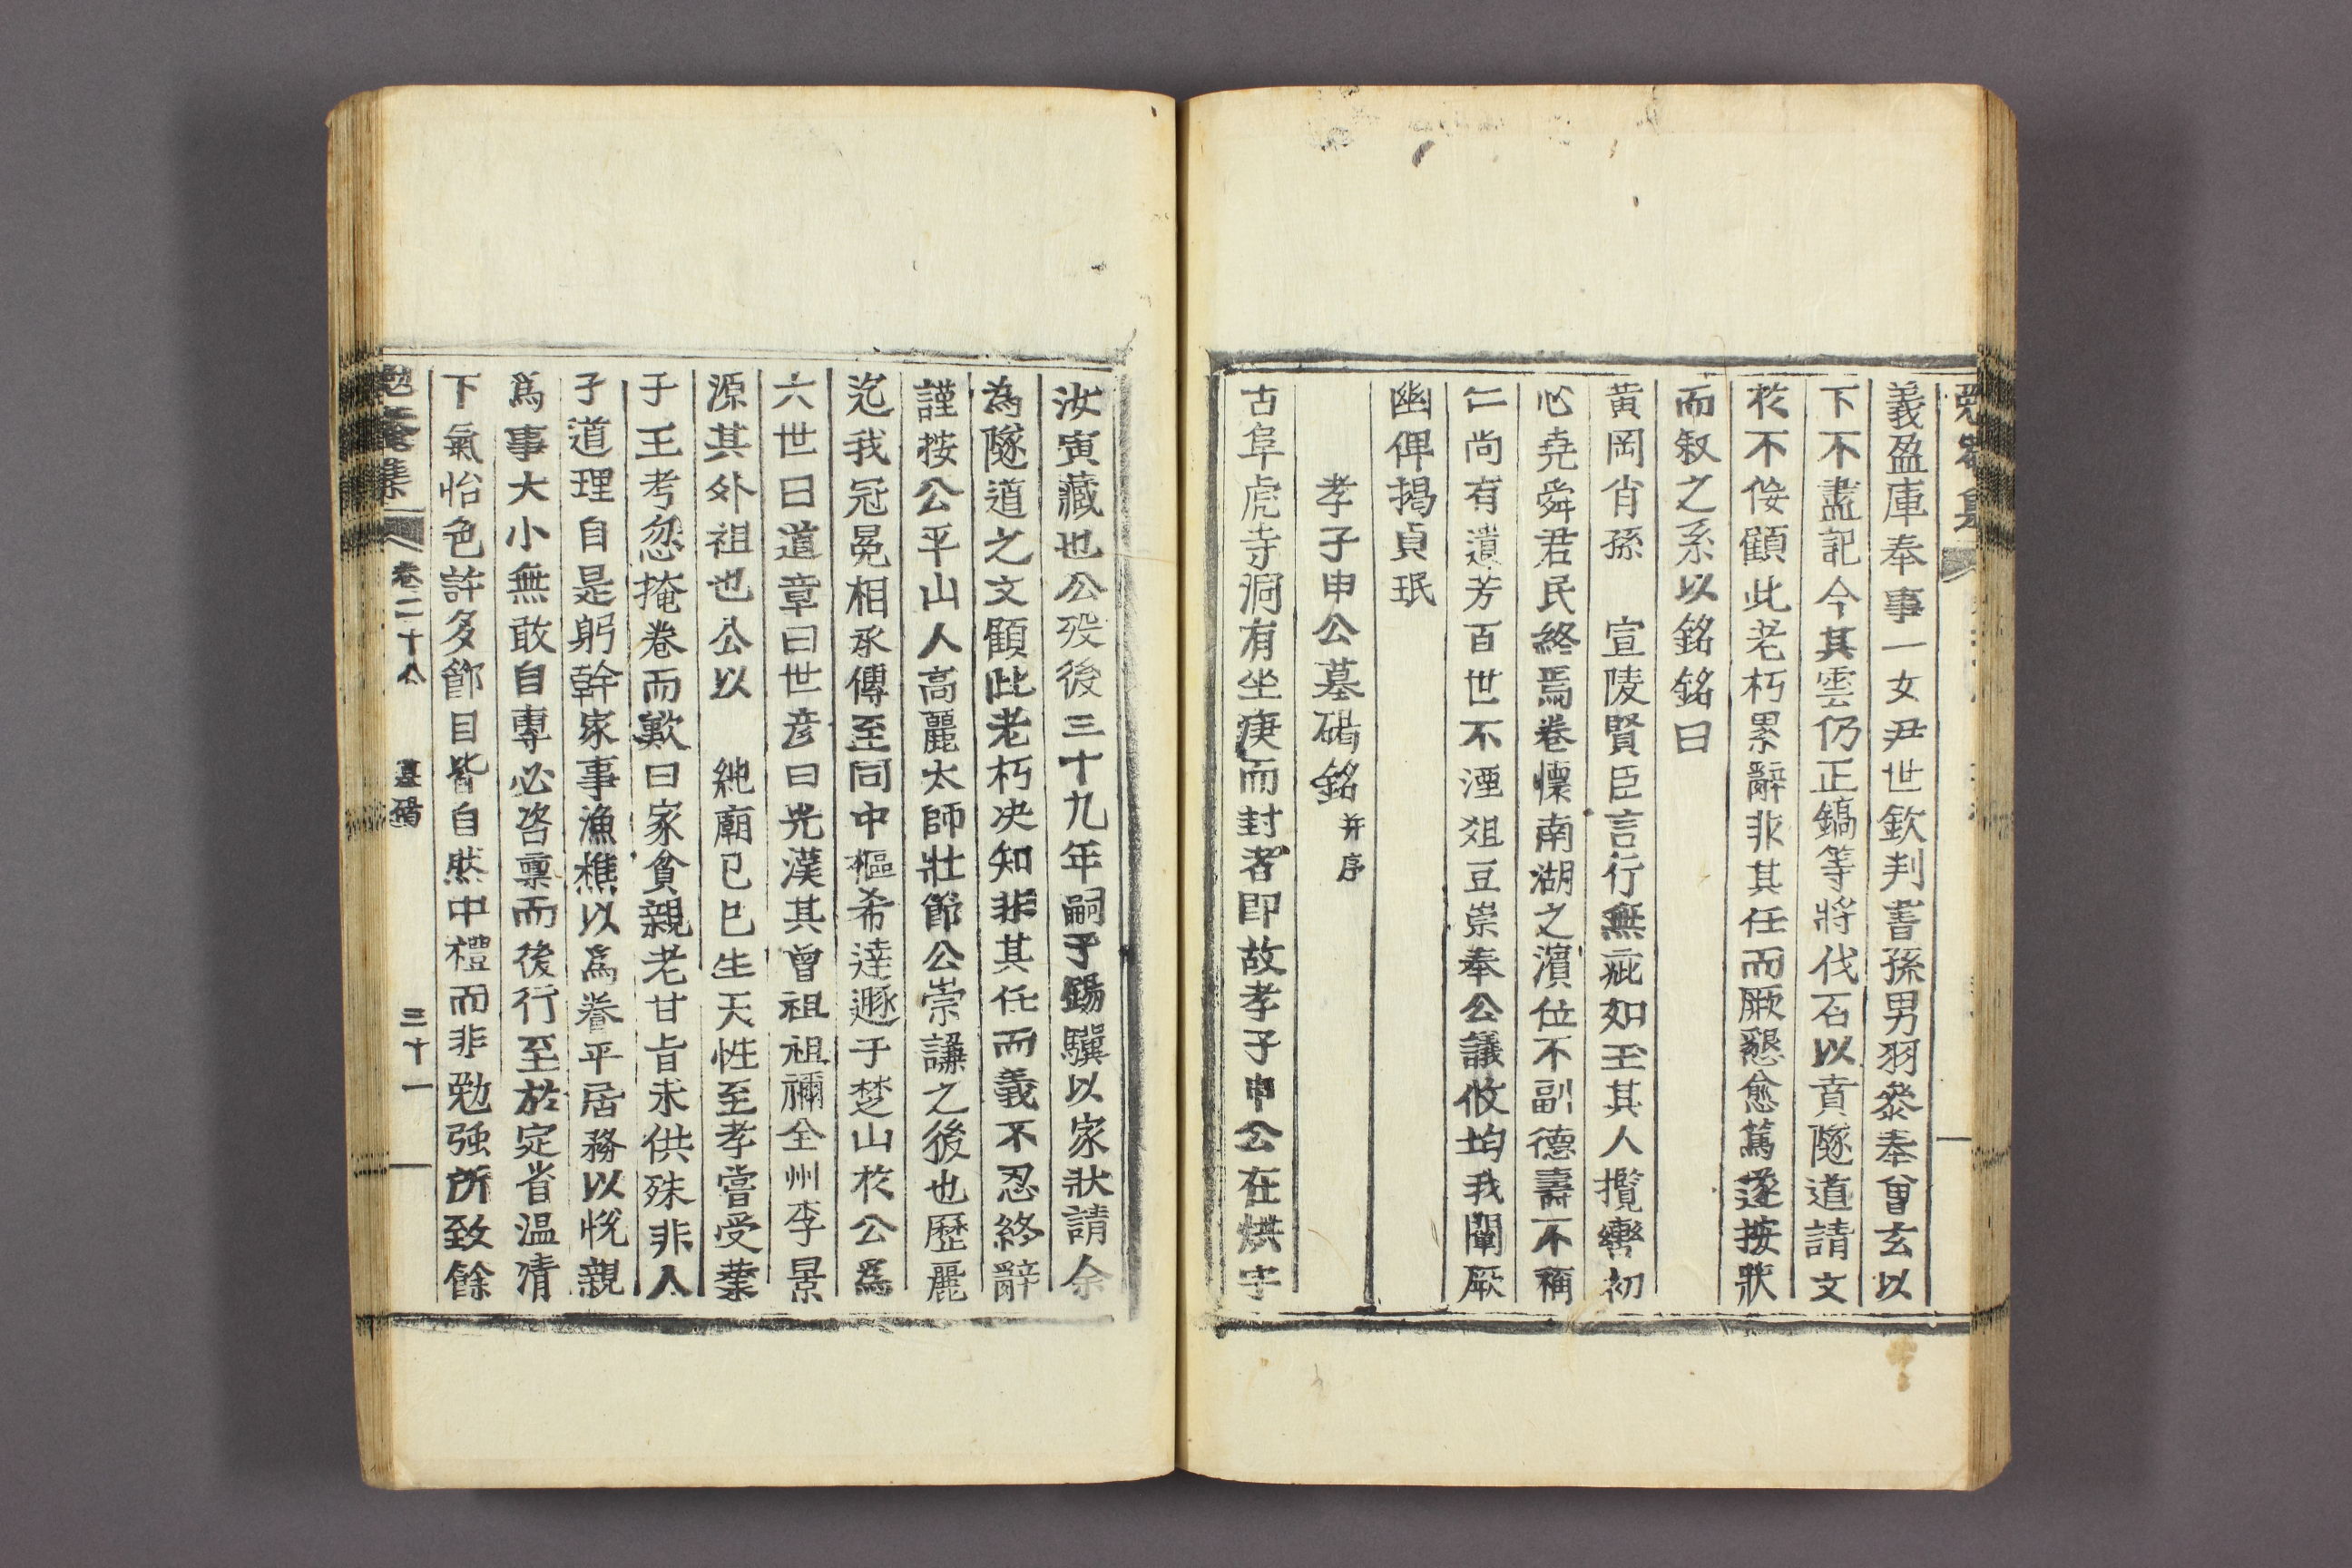 義盈庫奉事一女尹世欽判書孫男羽叅奉曾玄以
下不盡記今其雲仍正鎬等將伐石以賁隧道請文
於不侫顧此老朽累辭非其任而厥懇愈篤遂按狀
而叙之系以銘銘曰
黄岡肖孫 宣陵賢臣言行無疵如玉其人攬轡初
心堯舜君民終焉卷懷南湖之濱位不副德壽不稱
仁尚有遺芳百世不湮俎豆崇奉公議攸均我闡厥
幽俾揭貞珉
孝子申公墓碣銘并序
古阜虎寺洞有坐庚而封者即故孝子申公在烘字
汝寅藏也公歿後三十九年嗣子錫驥以家狀請余
為隧道之文顧此老朽决知非其任而義不忍終辭
謹按公平山人高麗太師壯節公崇謙之後也歷麗
迄我冠冕相承傳至同中樞希達遯于楚山於公爲
六世曰道章曰世彦曰光漢其曾祖祖禰全州李景
源其外祖也公以 純廟己巳生天性至孝嘗受業
于王考忽掩卷而歎曰家貧親老甘旨未供殊非人
子道理自是躬幹家事漁樵以爲養平居務以悅親
爲事大小無敢自專必咨禀而後行至於定省温凊
下氣怡色許多節目皆自然中禮而非勉强所致餘
勉菴集 卷二十八 墓碣 三十一